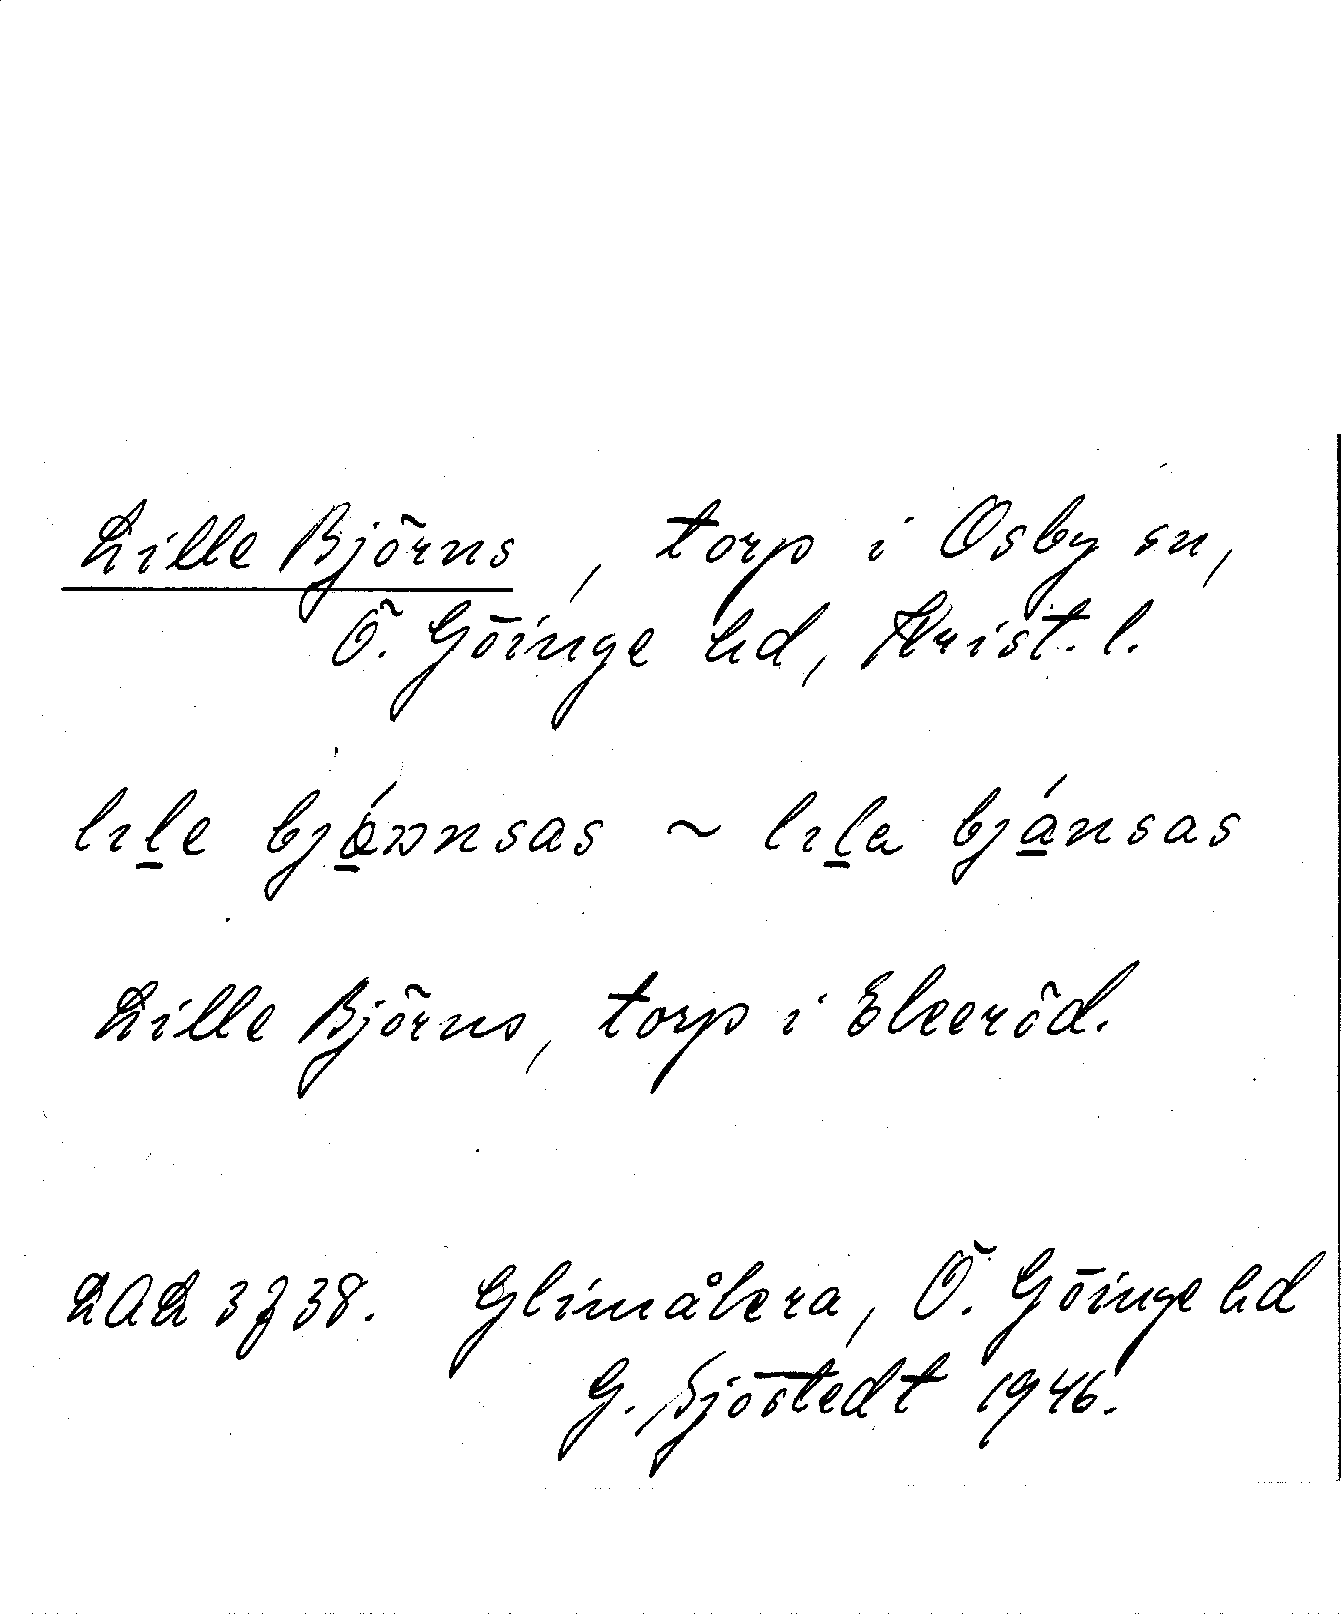 Lille Björns, torp i Osby sn,
Ö. Göinge hd, Krist. l.
lıl̲e bjǿ̲ɴnsas ~ lıl̲a bjá̲nsas
Lille Björns, torp i Ekeröd.
LAL 3738. Glimåkra, Ö. Göinge hd
G. Sjöstedt 1946.